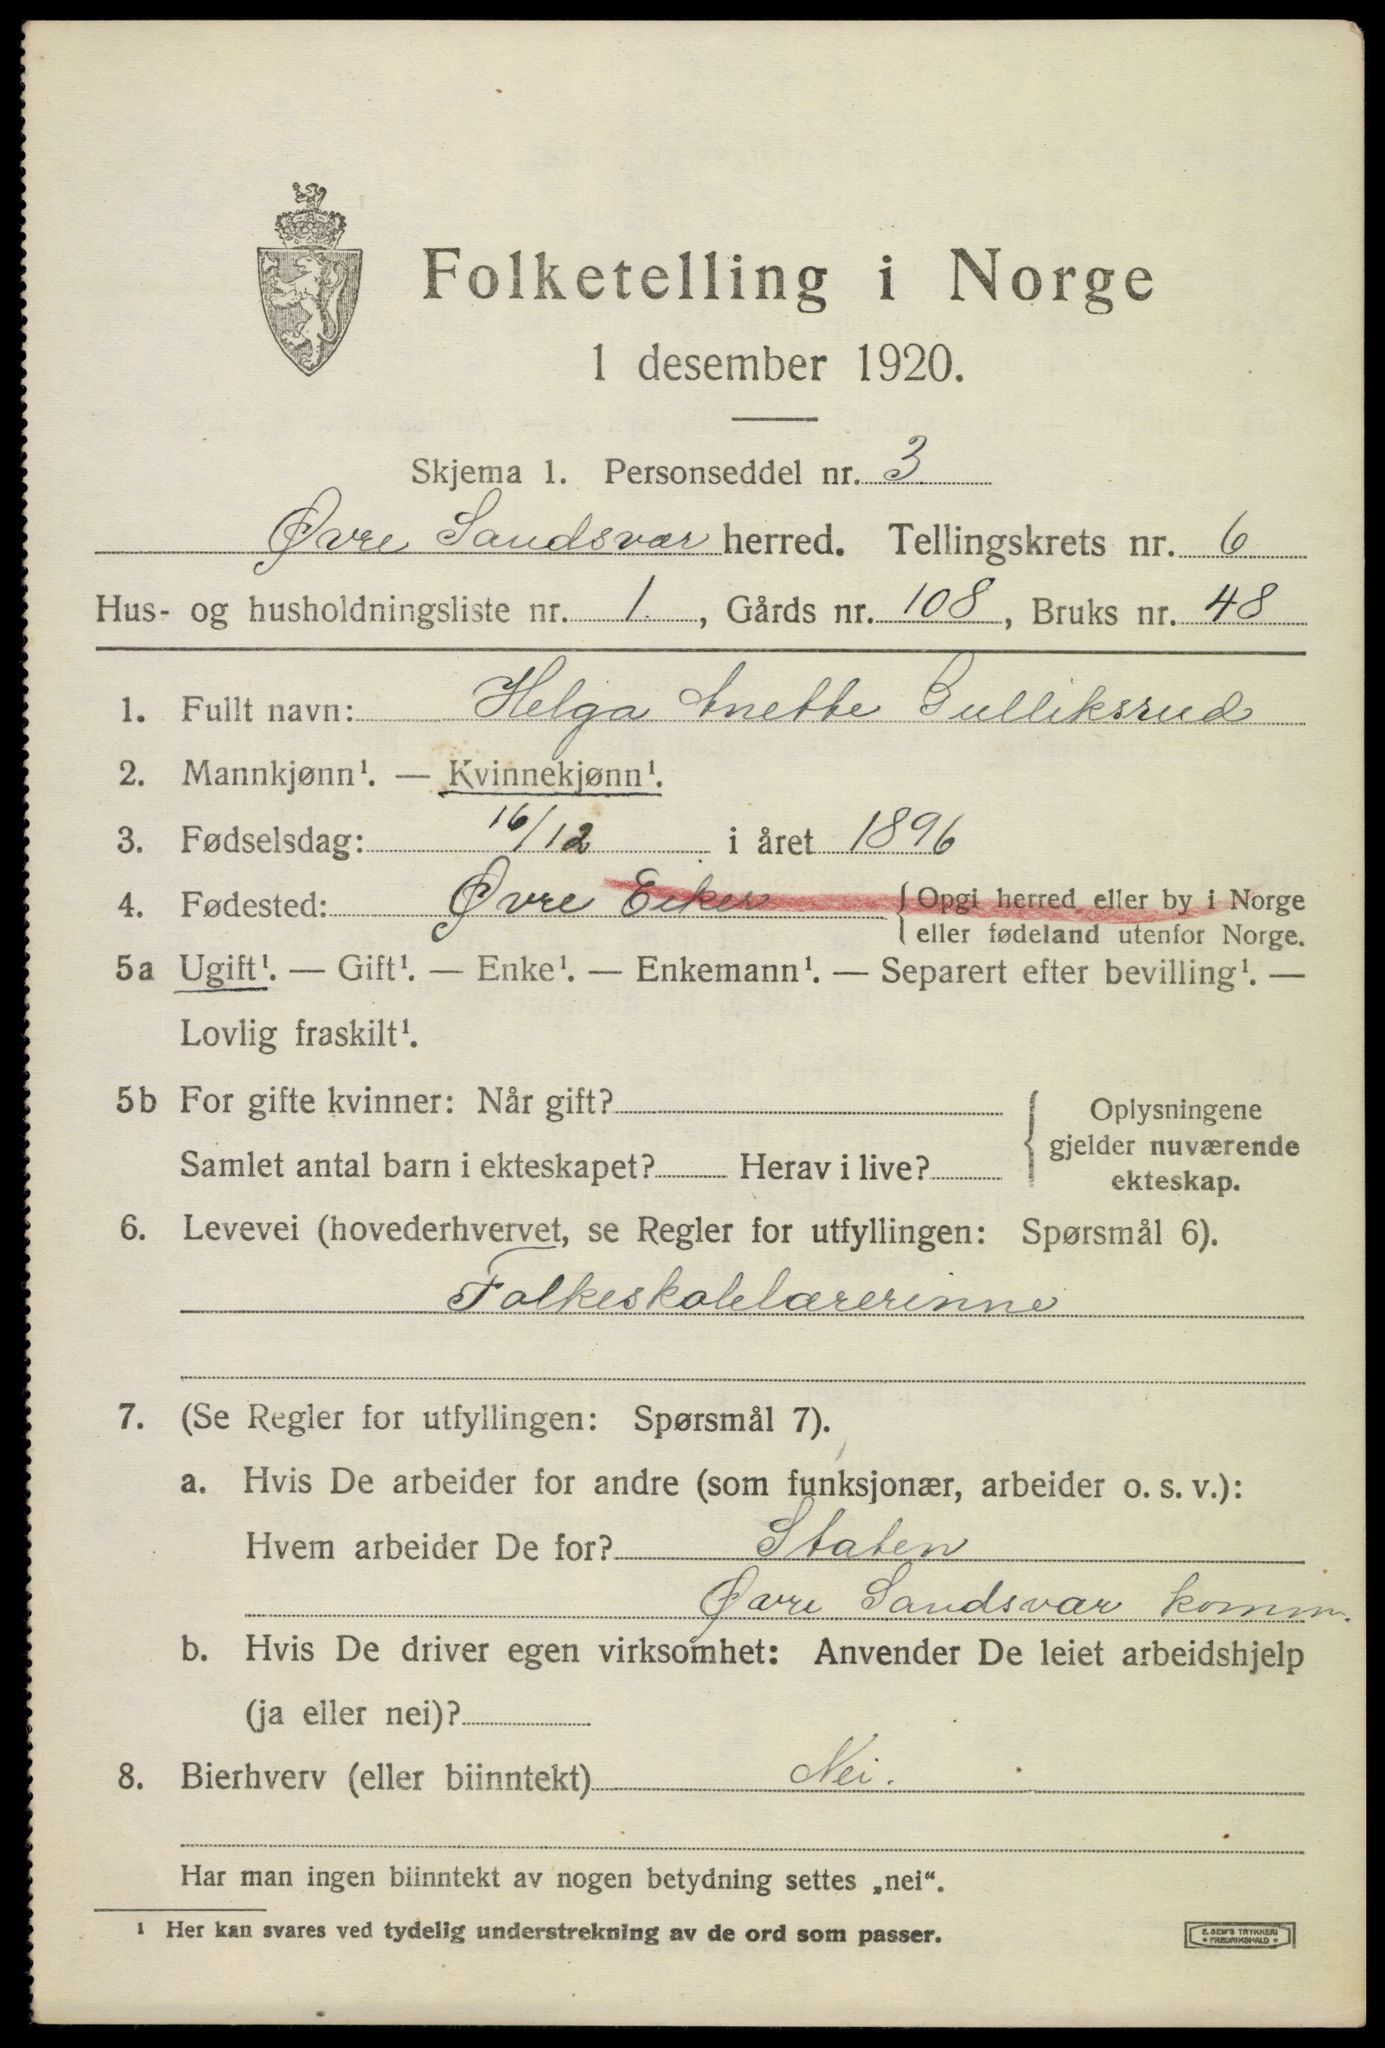 Folketelling i Norge
1 desember 1920.
Skjema 1. Personseddel nr. 3
Øvre Sandsvær herred. Tellingskrets nr. 6
Hus- og husholdningsliste nr. 1., Gårds nr. 108, Bruks nr. 48
1. Fullt navn: Helga Anette Gulliksrud
2. Mannkjønn¹. — Kvinnekjønn¹.
3. Fødselsdag: 16/12 i året 1896
4. Fødested: Øvre Eiker { Opgi herred eller by i Norge
eller fødeland utenfor Norge.
5a Ugift¹. — Gift¹. — Enke¹. — Enkemann¹. — Separert efter bevilling¹. —
Lovlig fraskilt¹.
5b For gifte kvinner: Når gift?
Samlet antal barn i ekteskapet? Herav i live?
Oplysningene
gjelder nuværende
ekteskap.
6. Levevei (hovederhvervet, se Regler for utfyllingen: Spørsmål 6).
Folkeskolelærerinne
7. (Se Regler for utfyllingen: Spørsmål 7).
a. Hvis De arbeider for andre (som funksjonær, arbeider o. s. v.):
Hvem arbeider De for? Staten
Øvre Sandsvær komm.
b. Hvis De driver egen virksomhet: Anvender De leiet arbeidshjelp
(ja eller nei)?
8. Bierhverv (eller biinntekt) Nei.
Har man ingen biinntekt av nogen betydning settes „nei“.
¹ Her kan svares ved tydelig understrekning av de ord som passer.
E. SEM'S TRYKKERI
• FREDRIKSHALD •